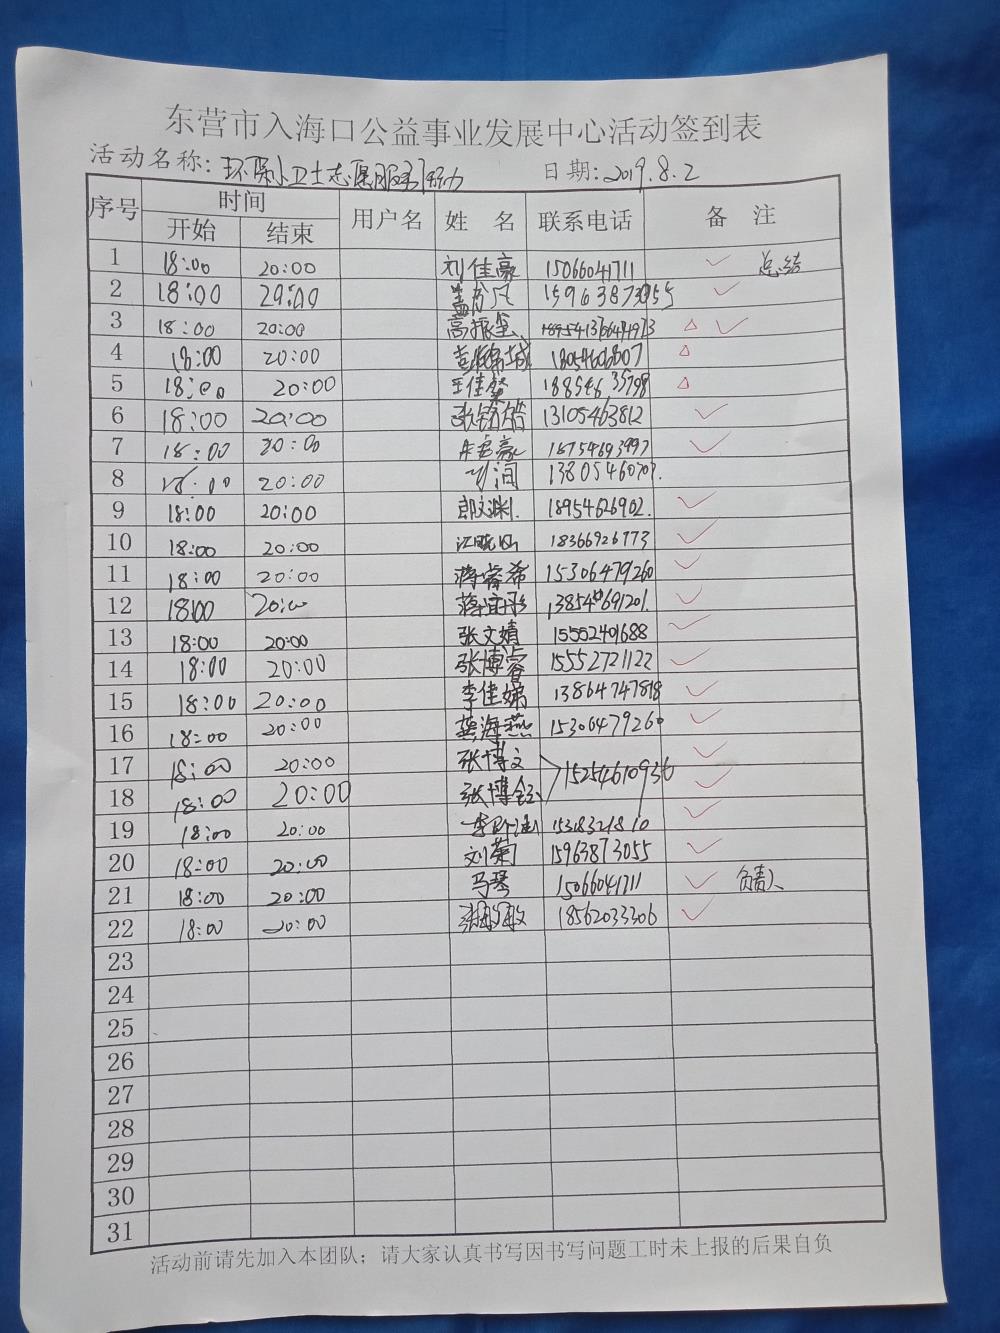 东营市入海口公益事业发展中心活动签到表
活动名称：环保小卫士志愿服务活动 日期：2019.8.2
序号 时间 用户名 姓名 联系电话 备注
开始 结束
1 18:00 20:00 刘佳豪 15066041711 总结
2 18:00 20:00 15963873055
3 18:00 20:00
4 18:00 20:00
5 18:00 20:00 18854635798
6 18:00 20:00 13105463812
7 18:00 20:00 18754693997
8 18:00 20:00
9 18:00 20:00 郎文渊 18954626902
10 18:00 20:00 18366926773
11 18:00 20:00 蒋睿希 15306479260
12 18:00 20:00
13 18:00 20:00 张文婧 15552401688
14 18:00 20:00 张博睿 15552721122
15 18:00 20:00 李佳娣 13864747818
16 18:00 20:00 龚海燕 15306479260
17 18:00 20:00 张博文 15254610936
18 18:00 20:00 张博钰
19 18:00 20:00
20 18:00 20:00 刘菊 15963873055
21 18:00 20:00 马琴 15066041711 负责人
22 18:00 20:00 18562033306
23
24
25
26
27
28
29
30
31
活动前请先加入本团队；请大家认真书写因书写问题工时未上报的后果自负